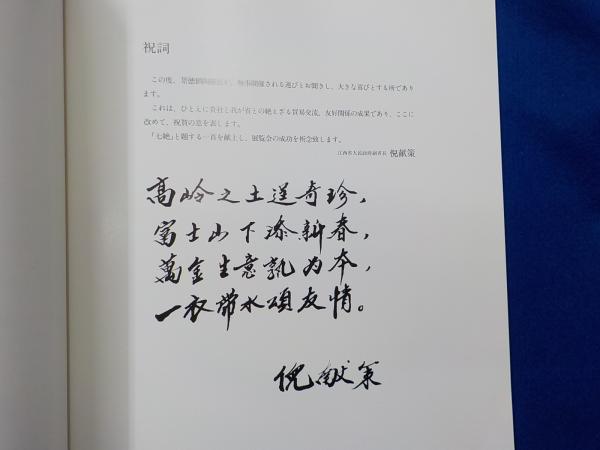 祝詞
この度、景徳鎮陶磁展が、毎年開催される運びとお聞きし、大きな喜びとする所であり
ます。
これは、ひとえに貴社と我が省との絶えざる貿易交流、友好関係の成果であり、ここに
改めて、祝賀の意を表します。
「七絶」と題する一首を献上し、展覧会の成功を祈念致します。
江西省人民政府副省長 倪献策
高岭之土送奇珍，
富士山下添新春，
萬金生意孰为本，
一衣带水頌友情。
倪献策